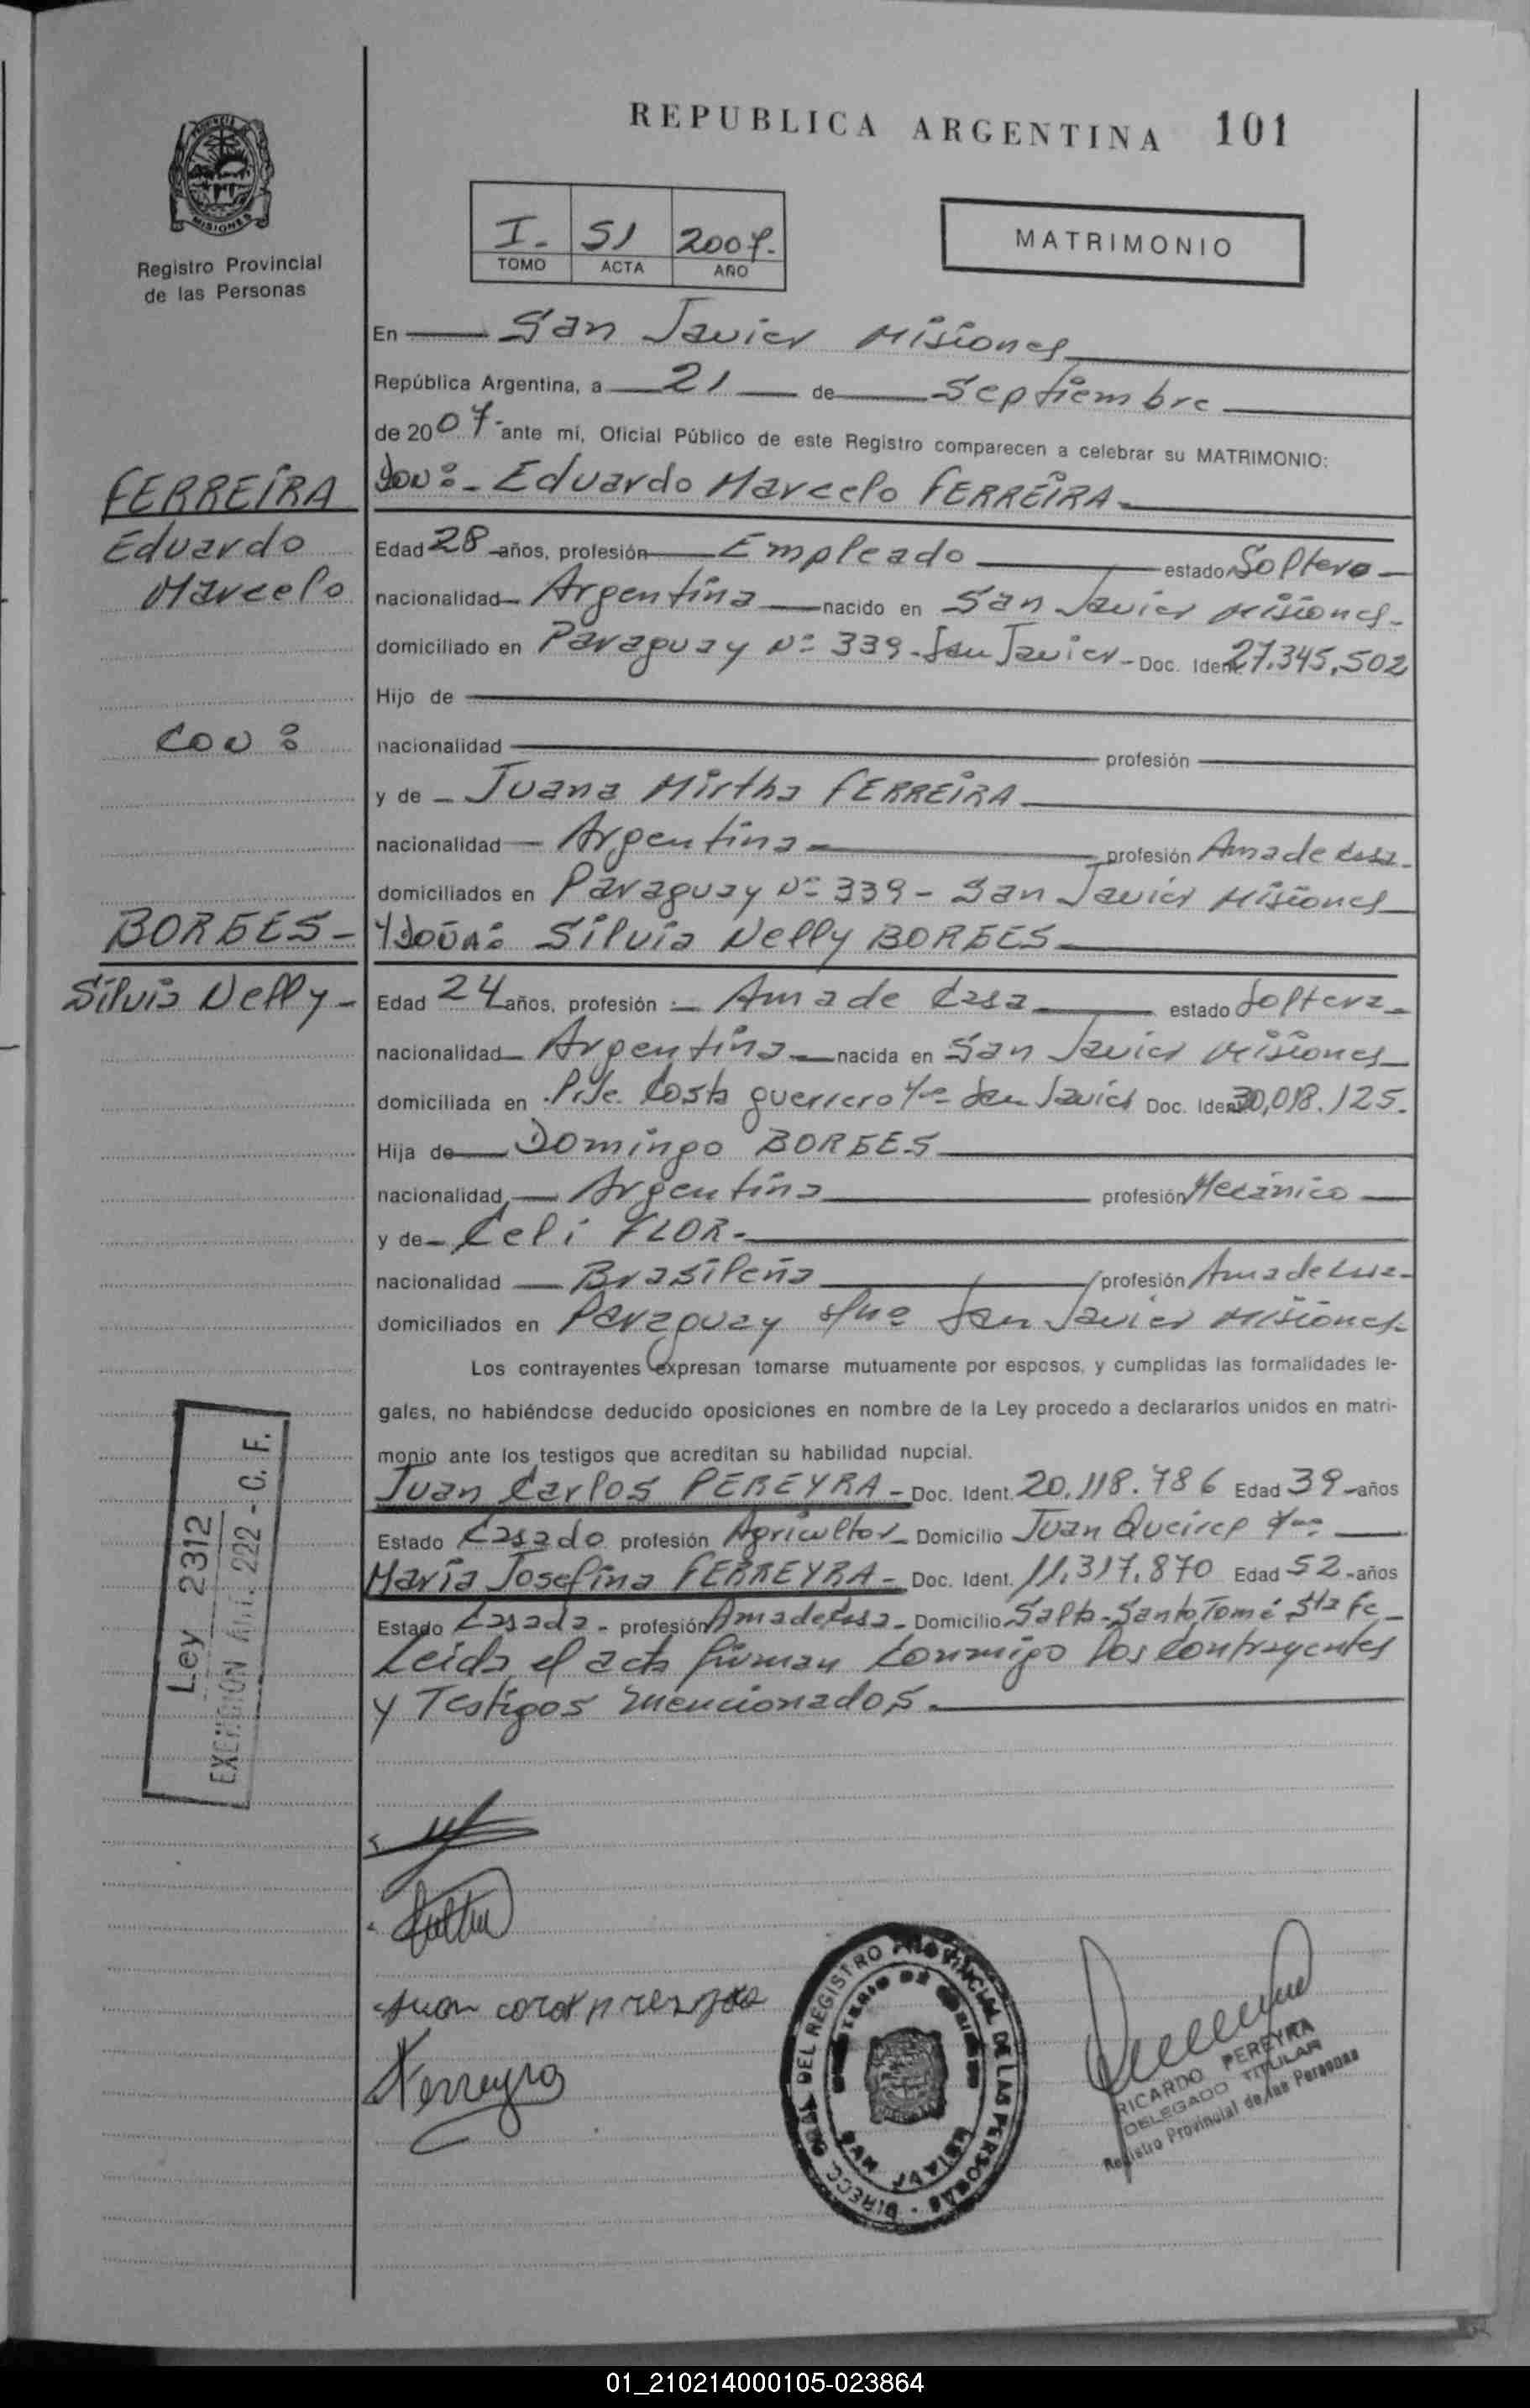 REPUBLICA ARGENTINA 101
PROVINCIA DE MISIONES
Registro Provincial
de las Personas
I. 51 2007.
TOMO ACTA AÑO
MATRIMONIO
En San Javier Misiones
República Argentina, a 21 de Septiembre
de 2007- ante mí, Oficial Público de este Registro comparecen a celebrar su MATRIMONIO:
FERREIRA
Eduardo
Marcelo
Con:
BORGES-
Silvia Nelly-
Don:- Eduardo Marcelo FERREIRA-
Edad 28 años, profesión Empleado estado Soltero-
nacionalidad Argentina nacido en San Javier Misiones-
domiciliado en Paraguay Nº 339-San Javier- Doc. Ident. 27.345,502
Hijo de
nacionalidad profesión
y de - Juana Mirtha FERREIRA
nacionalidad - Argentina- profesión Ama de casa-
domiciliados en Paraguay Nº 339- San Javier Misiones
Y Doña: Silvia Nelly BORGES
Edad 24 años, profesión :- Ama de Casa estado Soltera-
nacionalidad Argentina nacida en San Javier Misiones
domiciliada en Costa guerrero San Javier Doc. Ident. 30,018.125.
Hija de Domingo BORGES
nacionalidad Argentina profesión Mecánico
y de- Celi FLOR-
nacionalidad Brasileña profesión Ama de
domiciliados en Paraguay San Javier Misiones-
Los contrayentes expresan tomarse mutuamente por esposos, y cumplidas las formalidades le-
gales, no habiéndose deducido oposiciones en nombre de la Ley procedo a declararlos unidos en matri-
monio ante los testigos que acreditan su habilidad nupcial.
Juan Carlos PEREYRA- Doc. Ident. 20.118.786 Edad 39 años
Estado Casado profesión Agricultor Domicilio Juan Queirel
María Josefina FERREYRA- Doc. Ident. 11,317.870 Edad 52 años
Estado Casada- profesión Ama de Casa- Domicilio Salta-Santo Tomé Sta Fe
Leida el acta firman Conmigo los Contrayentes
y Testigos mencionados.
Ley 2312
EXENCION Art. 222 - C. F.
Juan
Ferreyra
DIRECC. GRAL. DEL REGISTRO PROVINCIAL DE LAS PERSONAS
MINISTERIO DE GOBIERNO
SAN JAVIER
RICARDO PEREYRA
DELEGADO TITULAR
Registro Provincial de las Personas
01_210214000105-023864